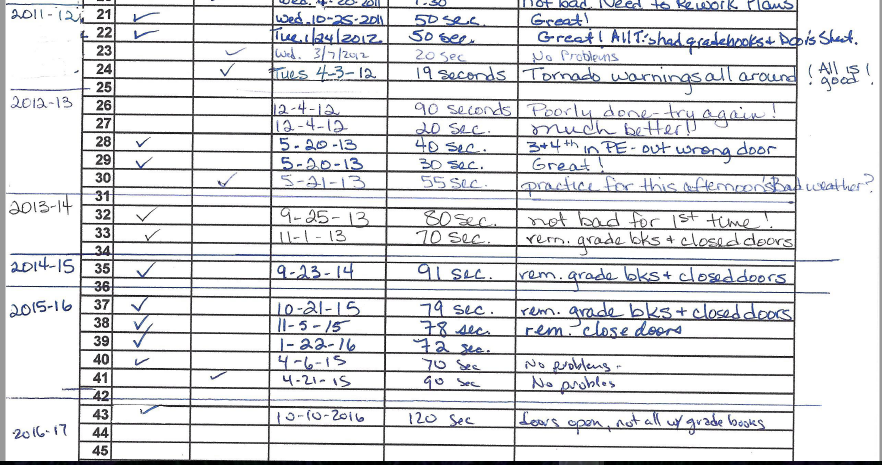 Wed. 4-20-2011 1:30 not bad. Need to Rework Plans
2011-12 21 ✓ Wed. 10-25-2011 50 sec. Great!
22 ✓ Tue. 1/24/2012 50 sec. Great! All T's had gradebooks + Sheet.
23 ✓ Wed. 3/7/2012 20 sec No Problems
24 ✓ Tues 4-3-12 19 seconds Tornado warnings all around (All is good!)
25
2012-13 26 12-4-12 90 seconds Poorly done - try again!
27 12-4-12 20 sec. much better!!
28 ✓ 5-20-13 40 sec. 3+4th in PE - out wrong door
29 ✓ 5-20-13 30 sec. Great!
30 ✓ 5-21-13 55 sec. practice for this afternoon's Bad weather?
31
2013-14 32 ✓ 9-25-13 80 sec. not bad for 1st time!
33 ✓ 11-1-13 70 sec. rem. grade bks + closed doors
34
2014-15 35 ✓ 9-23-14 91 sec. rem. grade bks + closed doors
36
2015-16 37 ✓ 10-21-15 79 sec. rem. grade bks + closed doors
38 ✓ 11-5-15 78 sec. rem. close doors
39 ✓ 1-22-16 72 sec.
40 ✓ 4-6-15 70 sec No problems -
41 ✓ 4-21-15 90 sec No probles
42
2016-17 43 ✓ 10-10-2016 120 sec doors open, not all w/ grade books
44
45